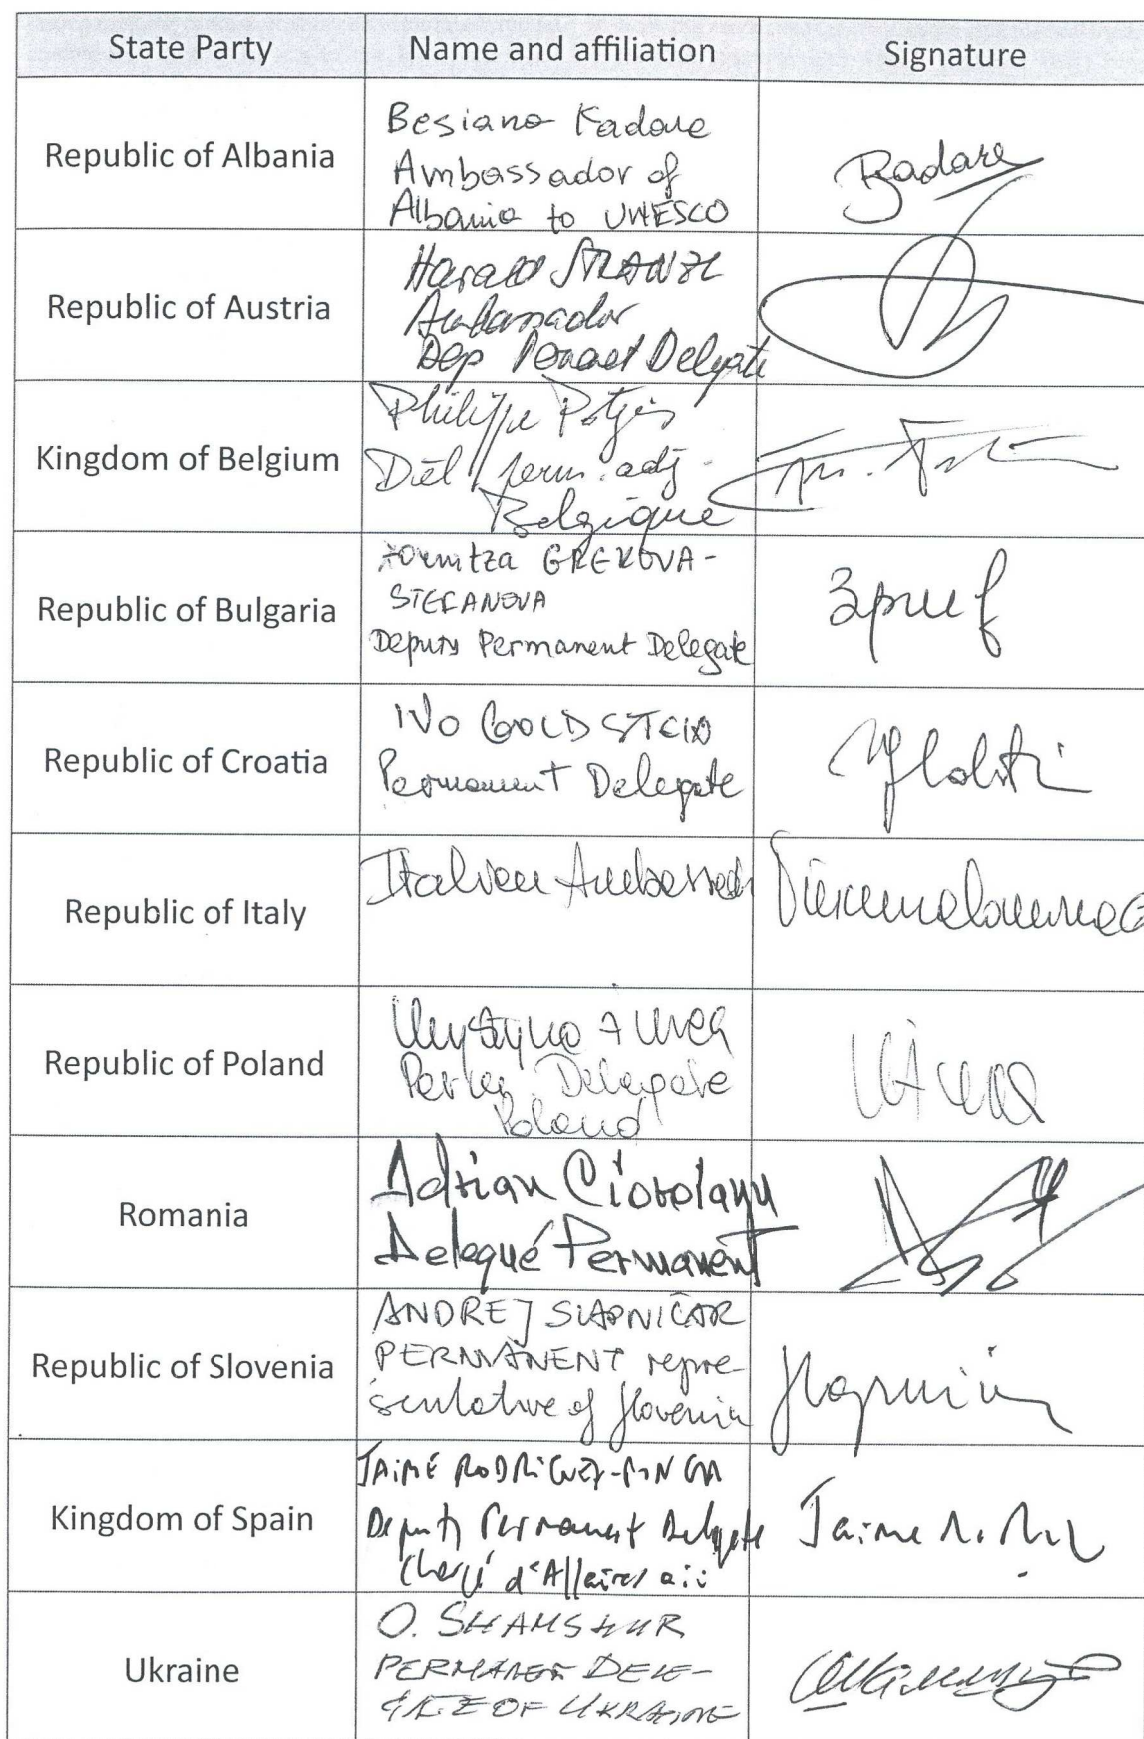 State Party Name and affiliation Signature
Republic of Albania
Besiana Kadare
Ambassador of
Albania to UNESCO
Kadare
Republic of Austria
Harald STRANZL
Ambassador
Dep Delegate
Kingdom of Belgium
Philippe Potjes
Dél perm. adj.
Belgique
Republic of Bulgaria
Zornitza GREKOVA-
STEFANOVA
Deputy Permanent Delegate
Republic of Croatia
IVO GOLDSTEIN
Permanent Delegate
Republic of Italy
Italian Ambassador
Republic of Poland
Delegate
Poland
Romania
Adrian Cioroianu
Delegué Permanent
Republic of Slovenia
ANDREJ SLAPNIČAR
PERMANENT repre-
sentative of Slovenia
Kingdom of Spain
JAIME RODRIGUEZ-
Deputy Permanent Delegate
Chargé d'Affaires a.i
Jaime
Ukraine
O. SHAMSHUR
PERMANENT DELE-
GATE OF UKRAINE